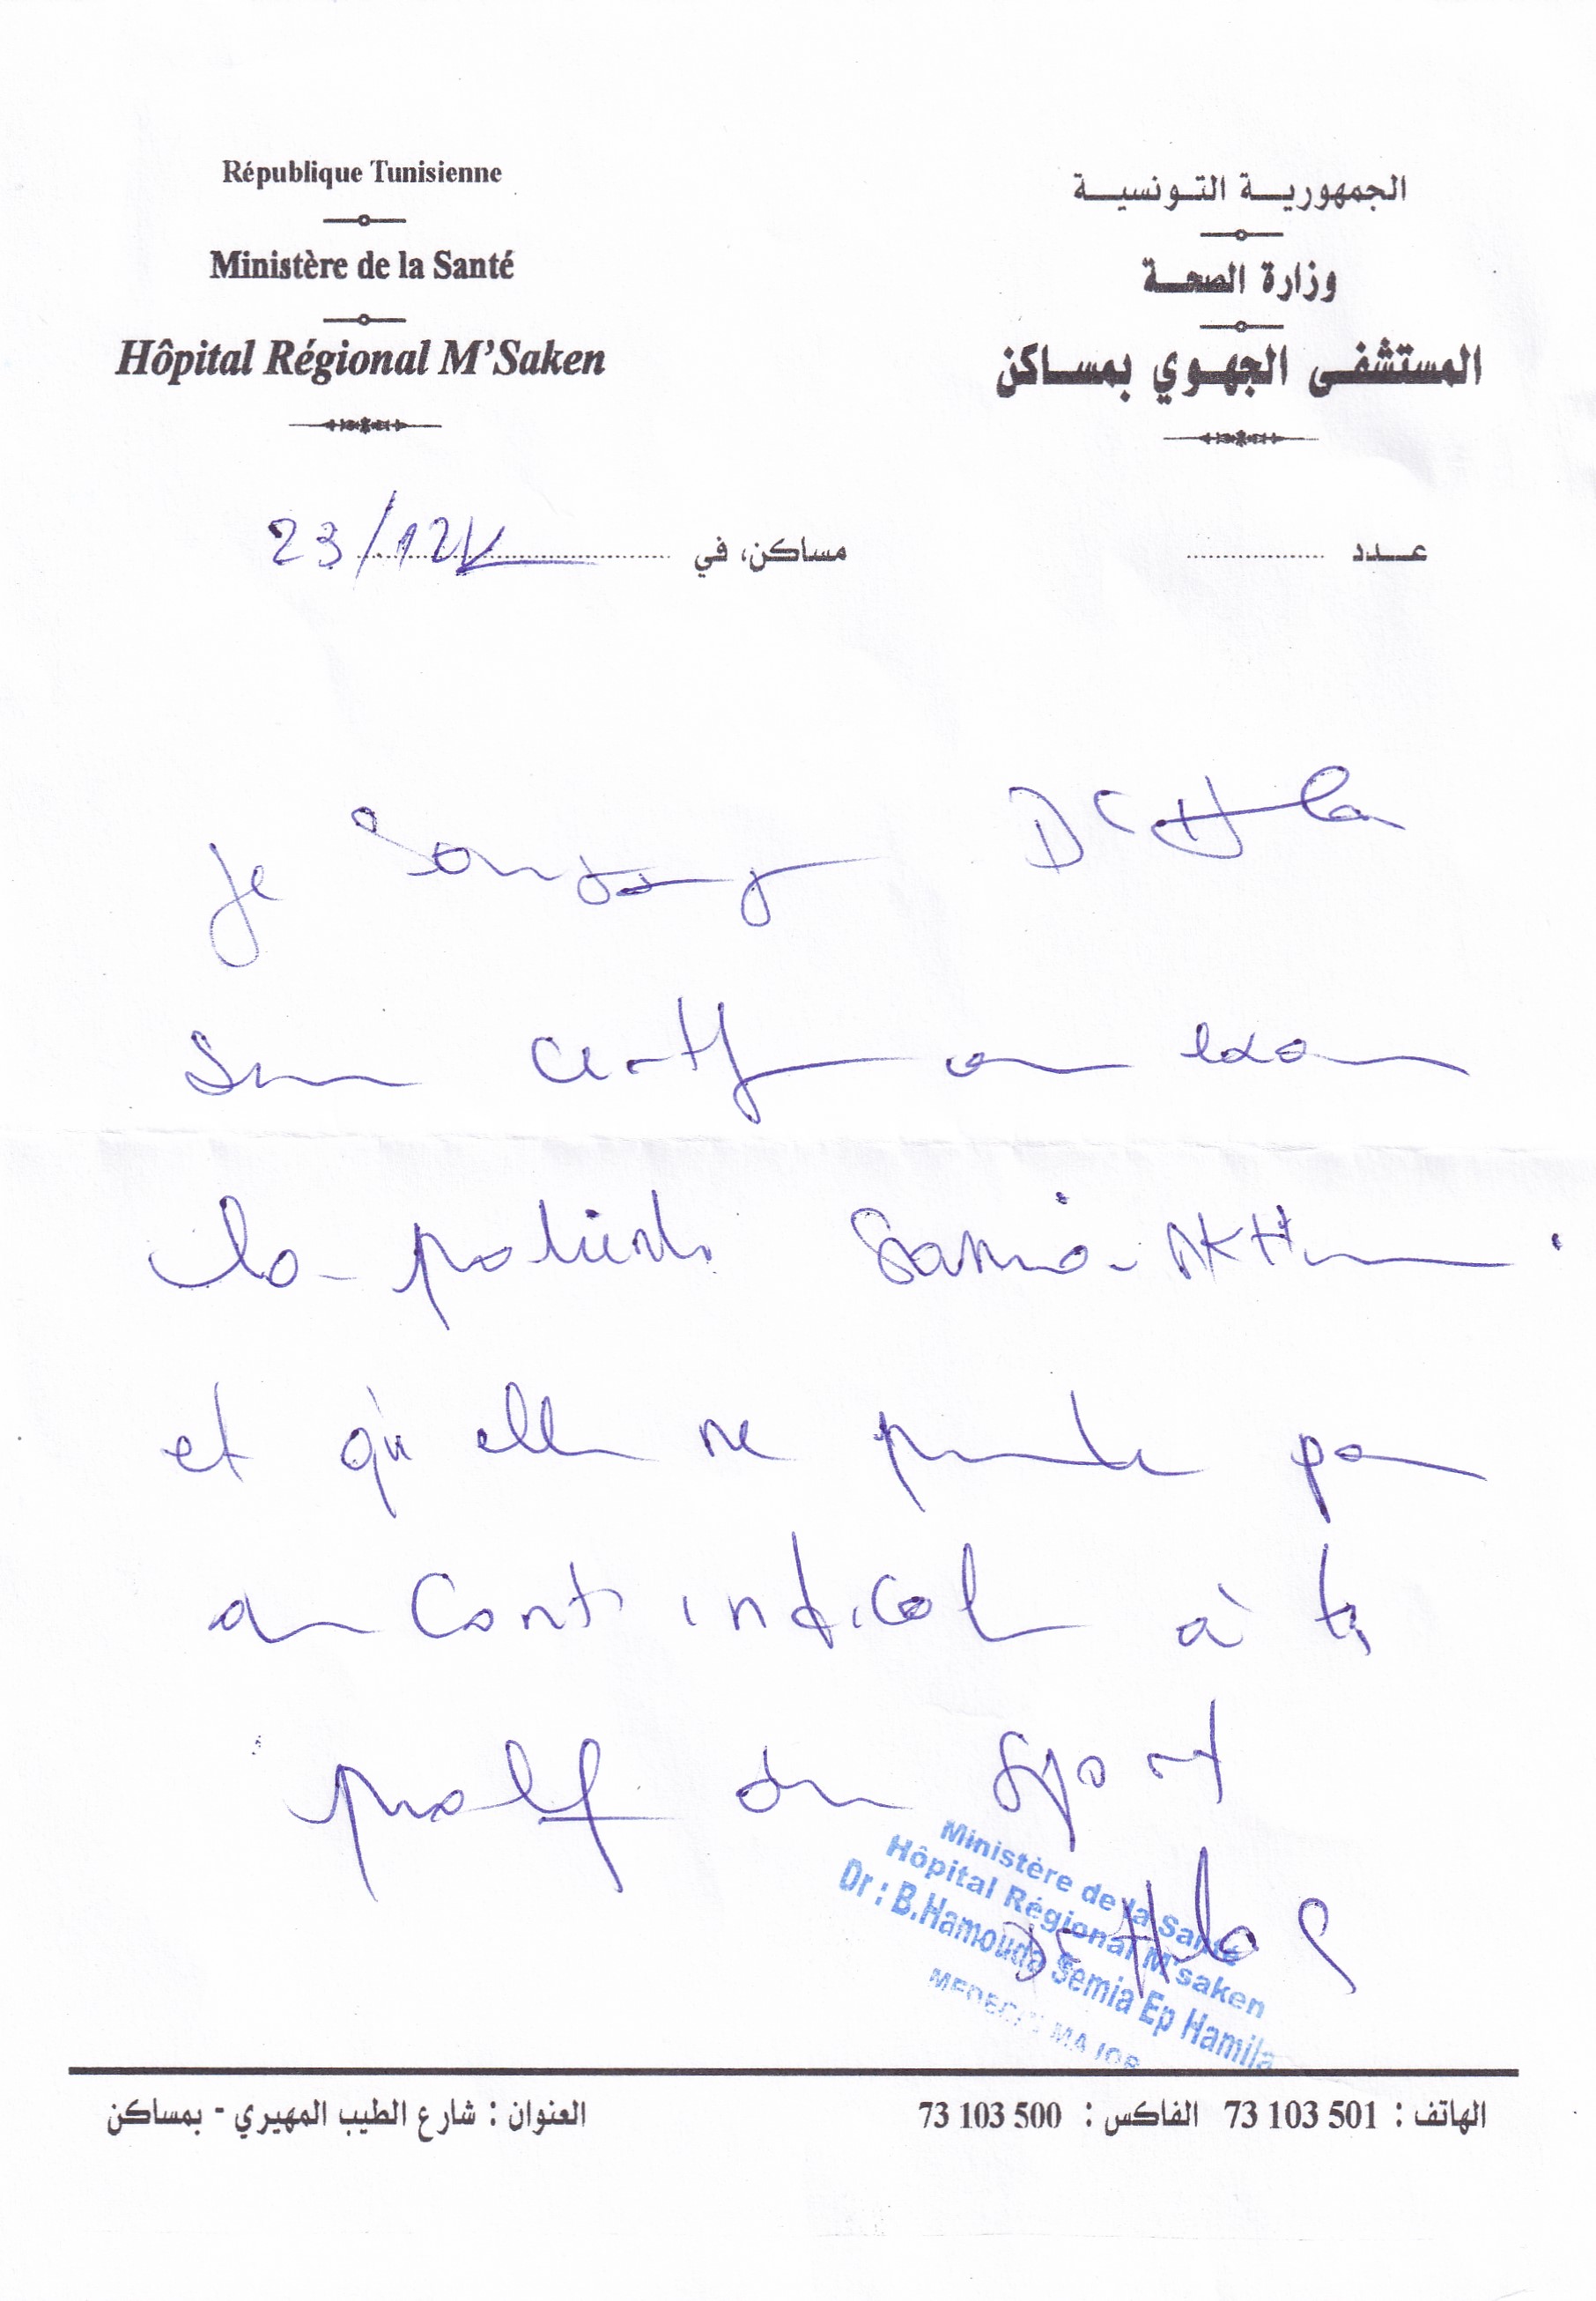 République Tunisienne
Ministère de la Santé
Hôpital Régional M'Saken
الجمهورية التونسية
وزارة الصحة
المستشفى الجهوي بمساكن
عدد
مساكن، في 23/12
Je Dr
certif exam
la patient Samia
et qu'elle ne pas
Cont indicat à la
du Sport
Ministère de la Santé
Hôpital Régional M'saken
Dr : B.Hamouda Semia Ep Hamila
MEDECIN MAJOR
الهاتف : 73 103 501 الفاكس : 73 103 500
العنوان : شارع الطيب المهيري - بمساكن